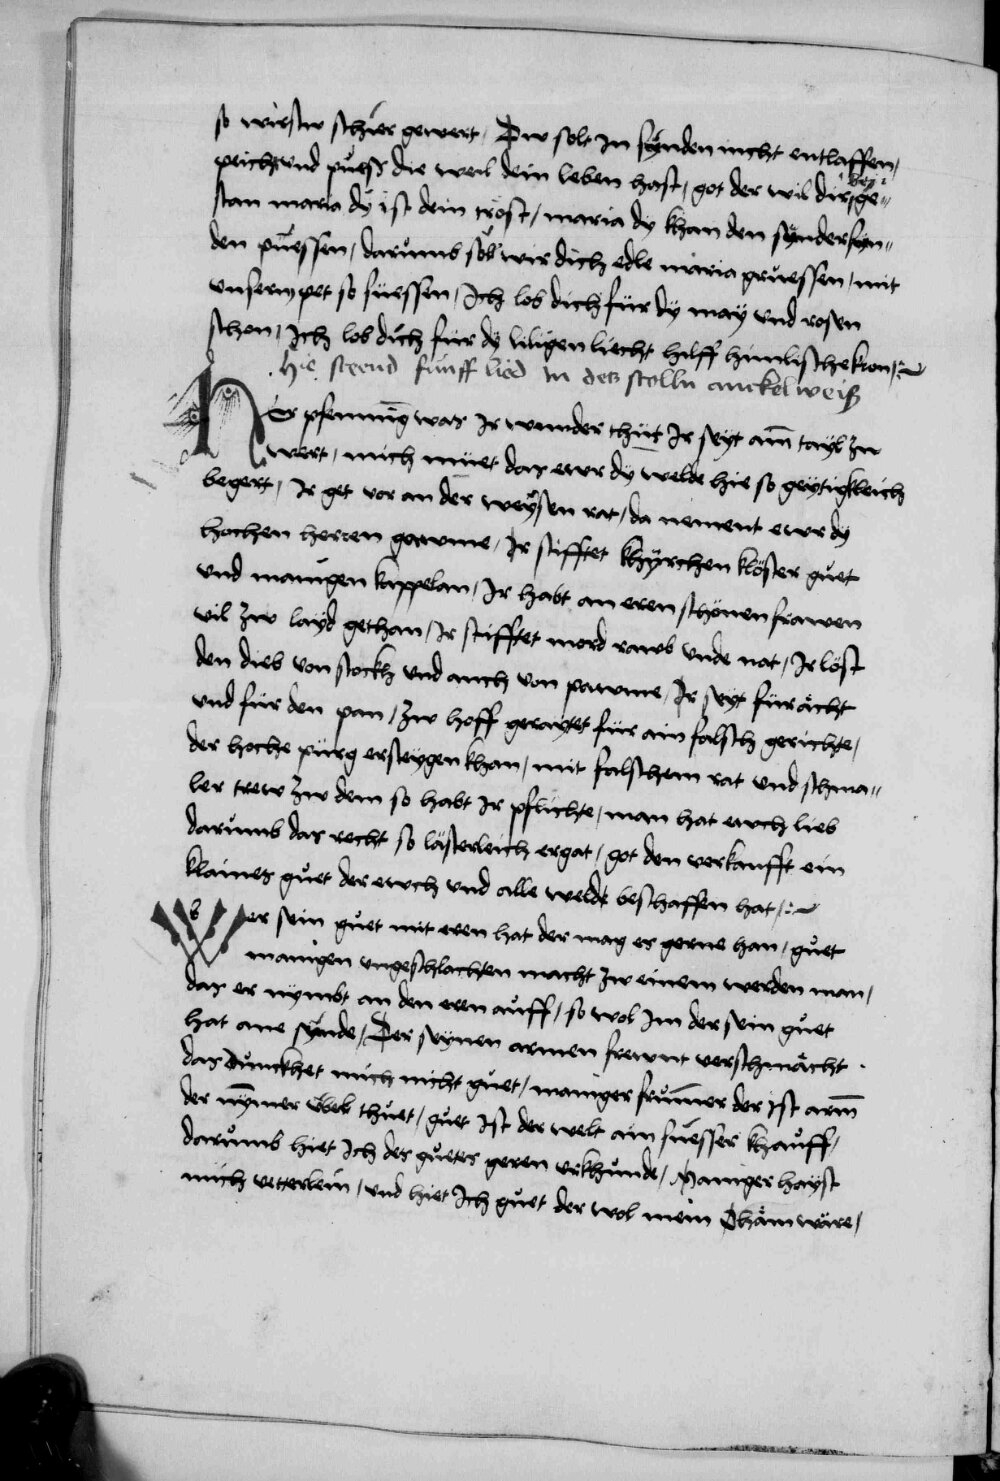 so wirstw schier gewert / Dw solt in sünden nicht entlaffen /
peicht vnd puess die weil dein leben hast / got der wil dir bej ge⸗
stan maria dÿ ist dein trost / maria dÿ khan den sünder sün⸗
den püessen / darumb söb wir dich edle maria gruessen / mit
vnserm pet so süessen / Ich lob dich für dÿ maÿ vnd rosen
schon / Ich lob dich für dÿ liligen liecht hilff himlische kron /
hie steend fünff lied in des stolln anckelweiß
HEr pfenning was Ir wunder thüt Ir seÿt am̄ taÿl zu
wert / mich müet das ewr dÿ welde hie so geÿtigkleich
begert / Ir get vor an der weÿsen rat / da nement ewr dÿ
hochen herren gawme / Ir stifftet khÿrchen klöster guet
vnd manigen kappelan / Ir habt an eren schönen frawen
vil zw laÿd gethan / Ir stifftet mord rawb vnde nat / Ir löst
den dieb von stockh vnd auch von pawme / Ir seÿt für ächt
vnd für den pan / zw hoff geraÿtet für ain falsch gerichte /
der hoche pürg ersteÿgen khan / mit falschem rat vnd schma⸗
ler trew zw dem so habt Ir pflichte / man hat ewch lieb
darumb das recht so lästerleich ergat / got den verkaufft ein
klaines guet der ewch vnd alle weldt beschaffen hat /
Wer sein guet mit eren hat der mag es gerne han / guet
manigen vngeschlachten macht zw einem werden man /
das er nÿmbt an den eren auff / so wol Im der sein guet
hat ane sünde / Der seÿnen armen frewnt verschmächt
das dunckhet mich nicht guet / maniger frumer der ist arm̄
der nÿmer übel thuet / guet ist der welt ain süesser khauff /
darumb hiet Ich des guetes geren vrkhunde / Maniger haÿst
mich vetterlein / vnd hiet Ich guet der wol mein Öhäm wäre /